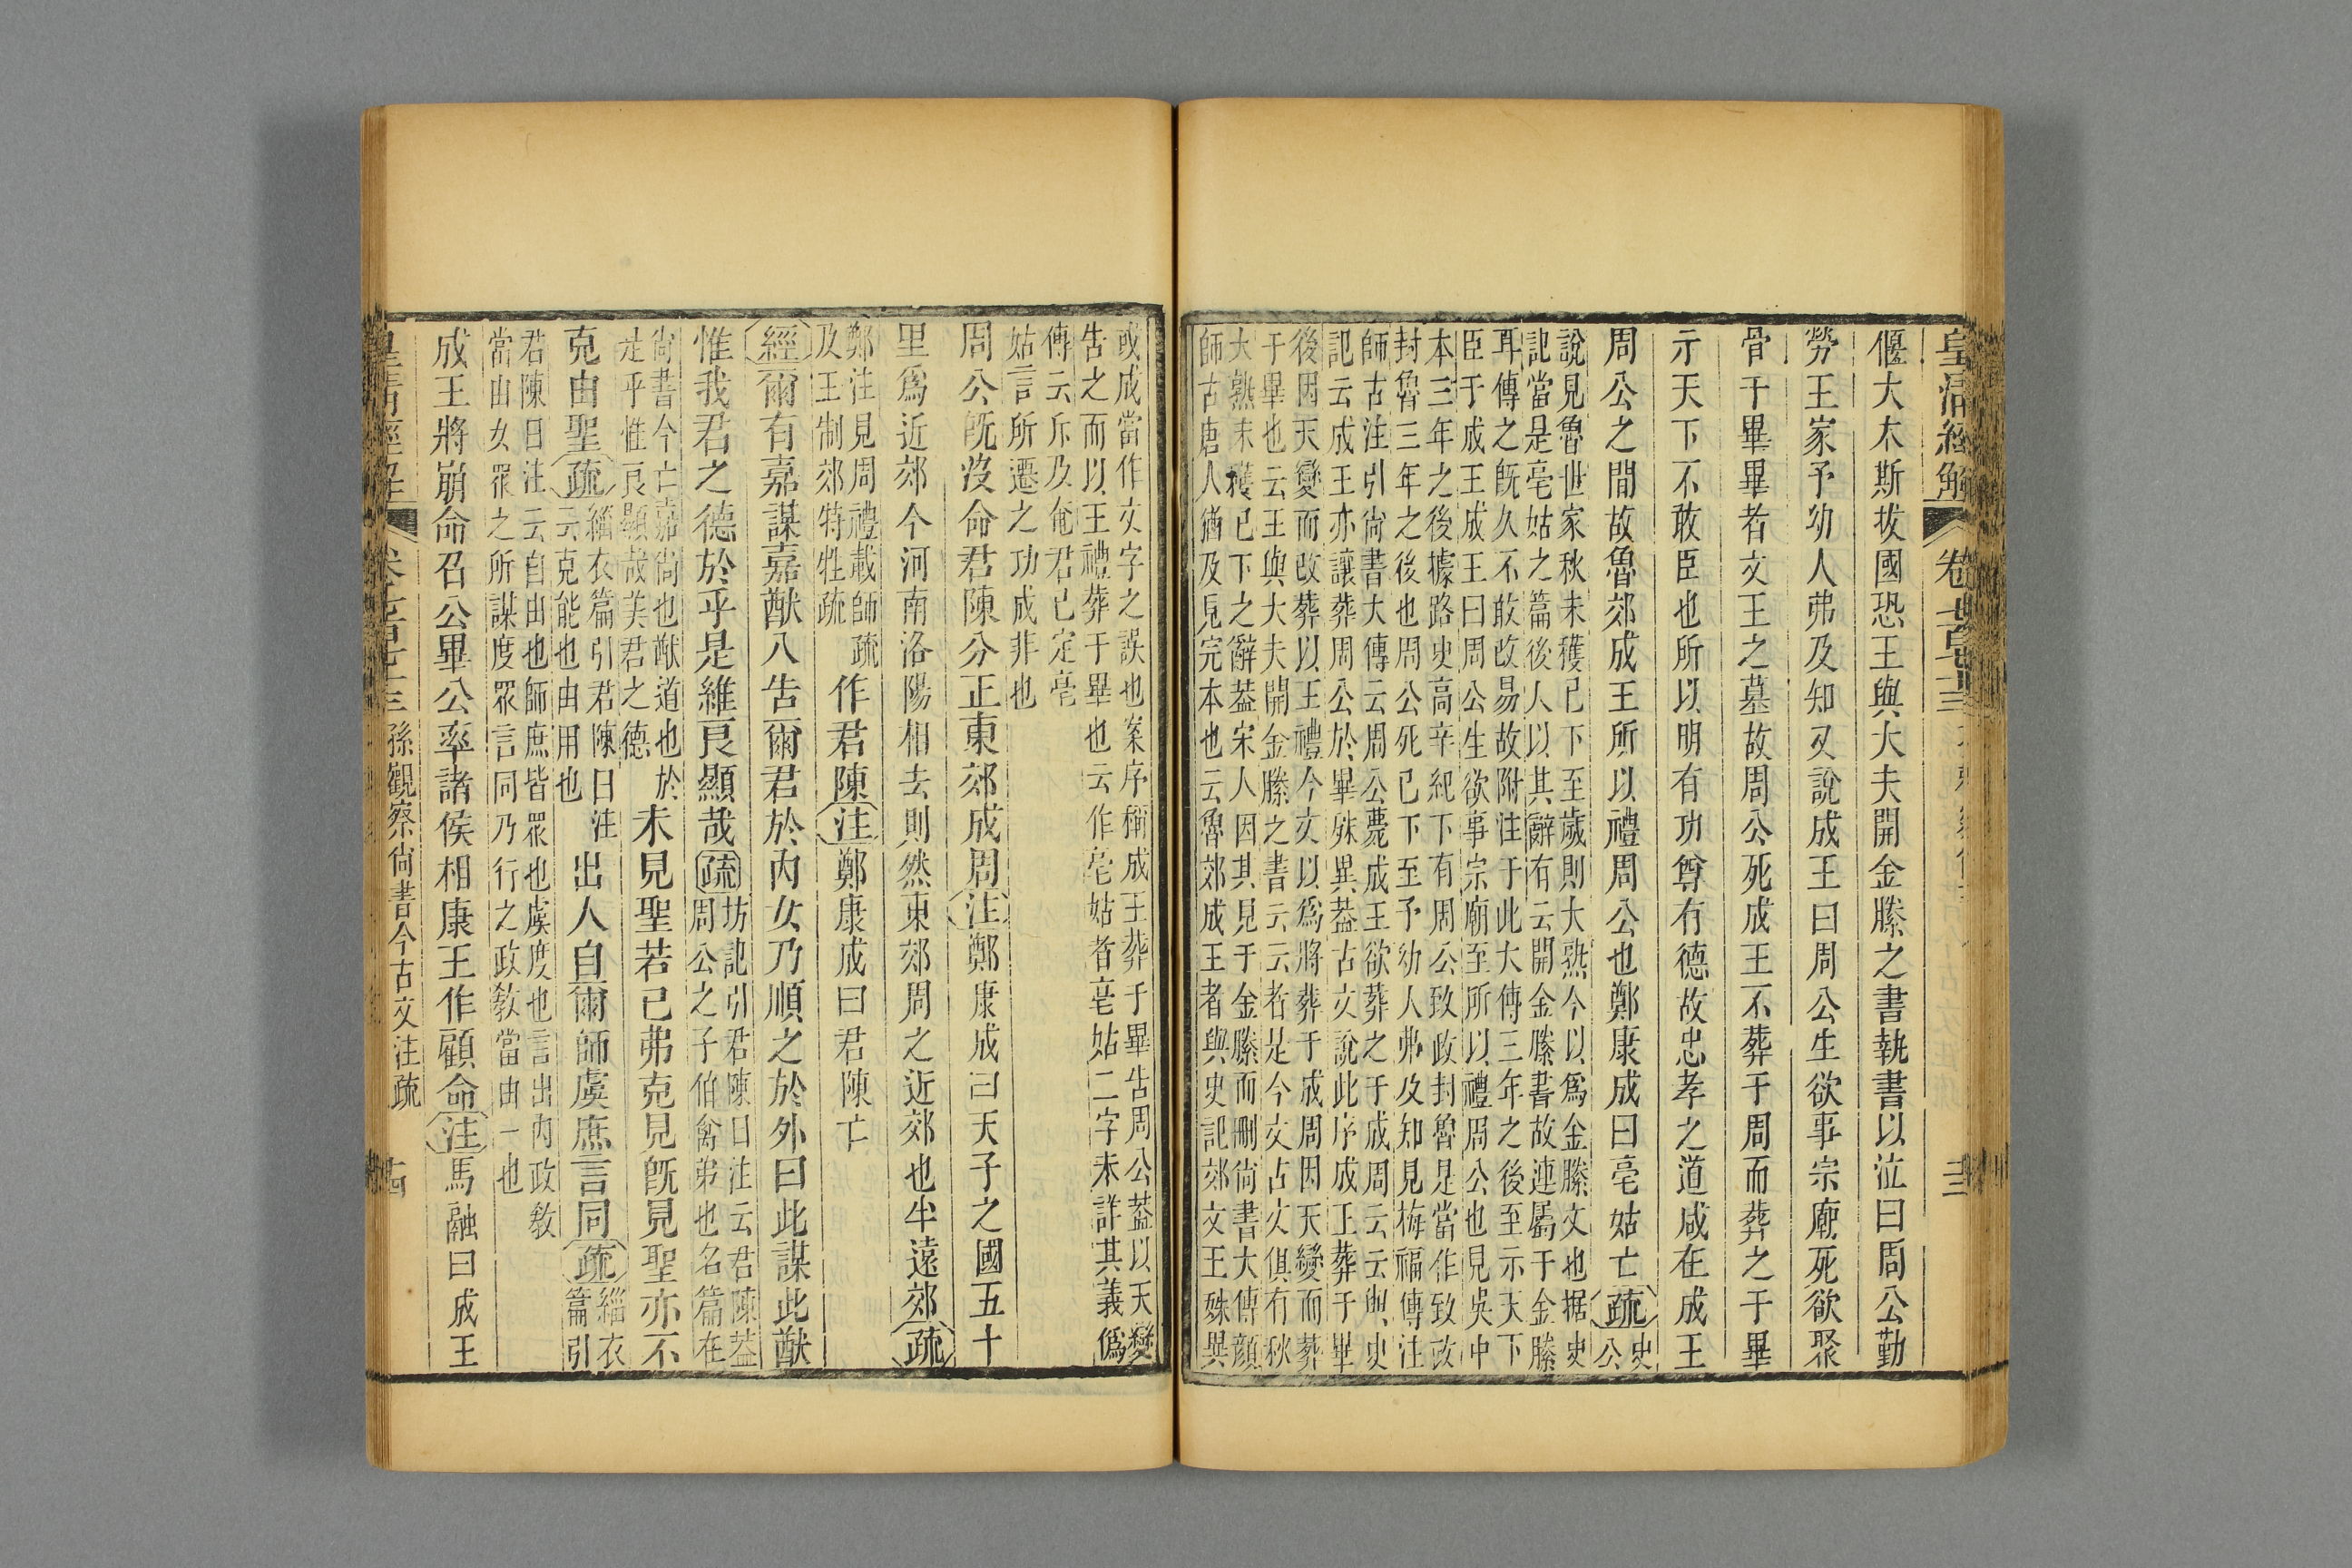 皇清經解
卷七百七十三
十三
偃大木斯拔國恐王與大夫開金縢之書執書以泣曰周公勤
勞王家予幼人弗及知乃說成王曰周公生欲事宗廟死欲聚
骨于畢畢者文王之墓故周公死成王不葬于周而葬之于畢
示天下不敢臣也所以明有功尊有德故忠孝之道咸在成王
周公之間故魯郊成王所以禮周公也鄭康成曰亳姑亡疏史
公
說見魯世家秋未穫已下至歲則大熟今以爲金縢文也据史
記當是亳姑之篇後人以其辭有云開金縢書故連屬于金縢
耳傳之旣久不敢改易故附注于此大傳三年之後至示天下
臣于成王成王曰周公生欲事宗廟至所以禮周公也見吳中
本三年之後據路史高辛紀下有周公致政封魯是當作致政
封魯三年之後也周公死已下至予幼人弗及知見梅福傳注
師古注引尙書大傳云周公薨成王欲葬之于成周云云與史
記云成王亦讓葬周公於畢殊異葢古文說此序成王葬于畢
後因天變而改葬以王禮今文以爲將葬于成周因天變而葬
于畢也云王與大夫開金縢之書云云者是今文古文俱有秋
大熟未穫已下之辭葢宋人因其見于金縢而刪尙書大傳顔
師古唐人猶及見完本也云魯郊成王者與史記郊文王殊異
或成當作文字之誤也案序稱成王葬于畢告周公葢以天變
告之而以王禮葬于畢也云作亳姑者亳姑二字未詳其義僞
傳云斥及奄君已定亳
姑言所遷之功成非也
周公旣沒命君陳分正東郊成周注鄭康成曰天子之國五十
里爲近郊今河南洛陽相去則然東郊周之近郊也半遠郊疏
鄭注見周禮載師疏
及王制郊特牲疏
作君陳注鄭康成曰君陳亡
經爾有嘉謀嘉猷入告爾君於內女乃順之於外曰此謀此猷
惟我君之德於乎是維良顯哉疏坊記引君陳曰注云君陳葢
周公之子伯禽弟也名篇在
尙書今亡嘉尙也猷道也於
是乎惟良顯哉美君之德
未見聖若己弗克見旣見聖亦不
克由聖疏緇衣篇引君陳曰注
云克能也由用也
出入自爾師虞庶言同疏緇衣
篇引
君陳曰注云自由也師庶皆眾也虞度也言出內政敎
當由女眾之所謀度眾言同乃行之政敎當由一也
成王將崩命召公畢公率諸侯相康王作顧命注馬融曰成王
皇清經解
卷七百七十三
孫觀察尙書今古文注疏
十四